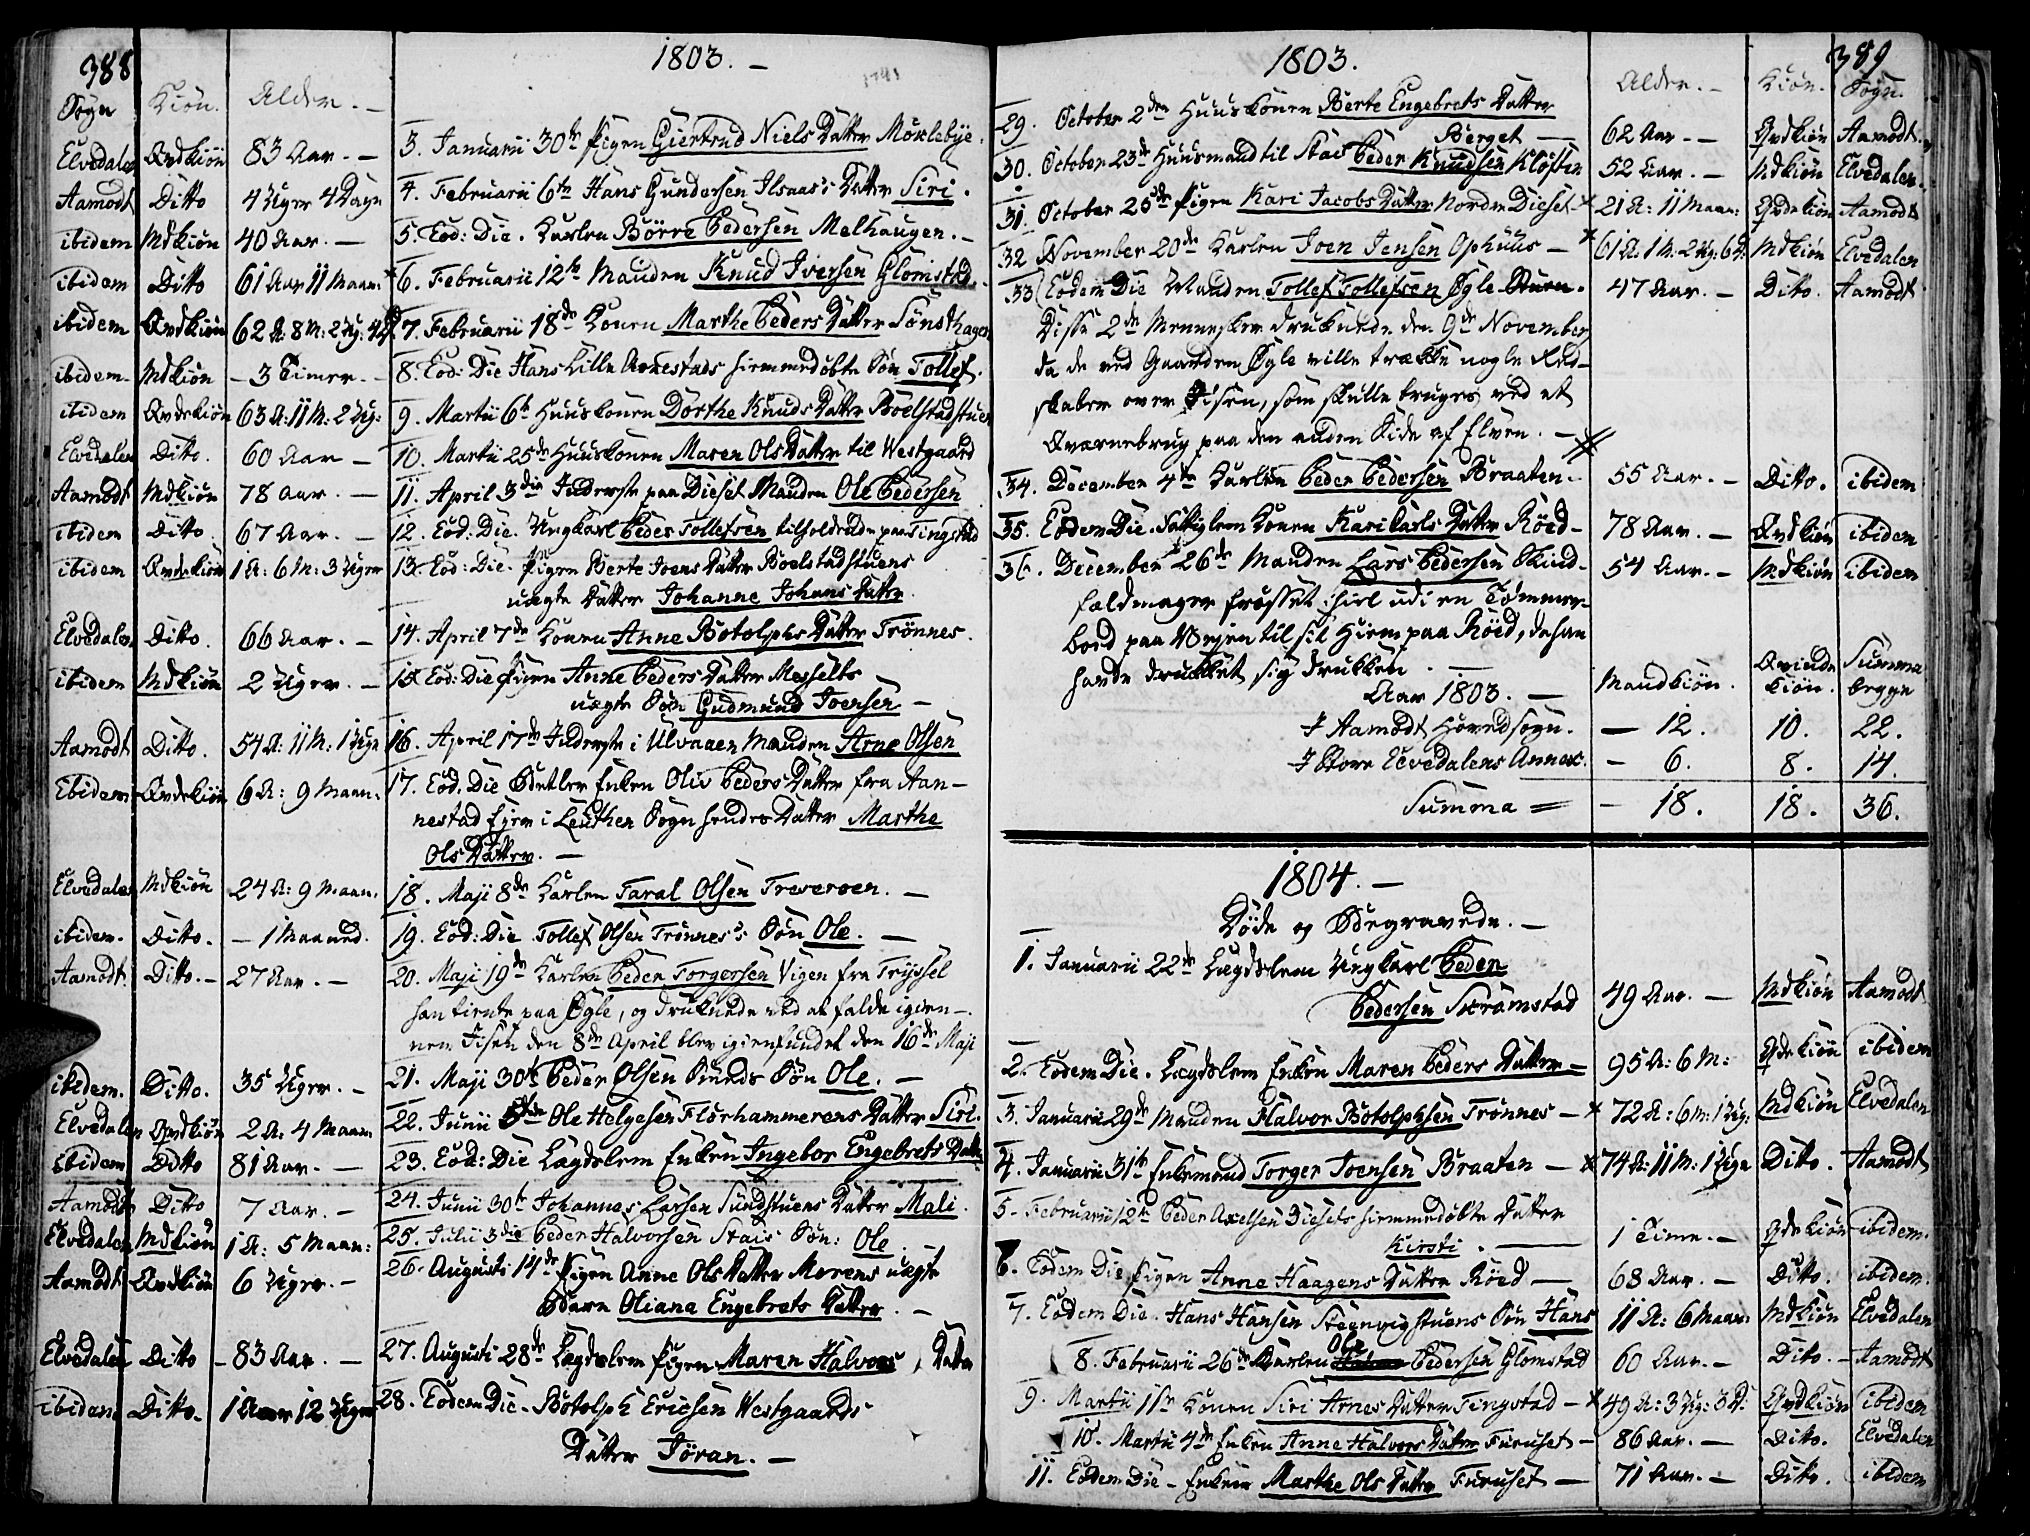 388
1803. —
Sogn Kiøn. Alder. —
Elvedalen Qvdkiøn 83 Aar. — 3. Januarii 30te Pigen Giertrud Niels Datter Møklebÿe.
Aamodt Ditto 4 Uger 4 Dage 4. Februarii 6te Hans Gundersen Ilsaas's Datter Siri.
ibidem Mdkiøn 40 Aar. — 5. Eod: Die. Karlen Børre Pedersen Melhaugen. —
ibidem Ditto 61 Aar 11 Maan: 6. Februarii 12te Manden Knud Iversen Glomstad.
ibidem Qvdkiøn 62 A: 8 M: 2 Ug: 4 D 7. Februarii 18de Konen Marthe Peders Datter Sønsthagen
ibidem Mdkiøn — 3 Timer. — 8. Eod: Die Hans Lille Arnestads hiemmedøbte Søn Tollef.
ibidem Qvdekiøn 63 A: 11 M: 2 Ug: 9. Martii 6te Huuskonen Dorthe Knuds Datter Boelstadstuen
Elvedalen Ditto. 60 Aar — 10. Martii 25de Huuskonen Maren Ols Datter til Westgaard
Aamodt Mdkiøn 78 Aar. — 11. April 3die Inderste paa Dieset Manden Ole Pedersen
ibidem Ditto. 67 Aar. — 12. Eod: Die. Ungkarl Peder Tollefsen tilholdende paa Tingstad
ibidem Qvdekiøn 1 A: 6 M: 3 Uger 13. Eod: Die. Pigen Berte Joens Datter Boelstadstuens
uægte Datter Johanne Johans Datter.
Elvedalen Ditto. 66 Aar. — 14. April 7de Konen Anne Botolphs Datter Trønnes.
ibidem Mdkiøn 2 Uger. — 15. Eod: Die Pigen Anne Peders Datter Messelts
uægte Søn Gudmund Joensen —
Aamodt Ditto. 54 A: 11 M: 1 Uge 16. April 17de Inderste i Ulvaaen Manden Arne Olsen
Ebidem Qvdekiøn 6 A: 9 Maan: 17. Eod. Die Betler Enken Oliv Peders Datter fra Aan-
nestad Ejer i Leuthen Sogn hendes Datter Marthe
Ols Datter. —
Elvedalen Mdkiøn 24 A: 9 Maan. 18. Maji 8de Karlen Taral Olsen Treveroen. —
ibidem. Ditto. — 1 Maaned. 19. Eod: Die Tollef Olsen Trønnes's Søn Ole. —
Aamodt. Ditto. — 27 Aar. — 20. Maji 19de Karlen Peder Torgersen Vigen fra Trÿssel
han tiente paa Øgle, og druknede ved at falde igien-
nem Jisen den 8de April blev igienfundet den 16de Maji
ibidem. Ditto. 35 Uger. — 21. Maji 30te Peder Olsen Sunds Søn Ole. —
Elvedalen Qvdkiøn 2 A: 4 Maan 22. Junii 5te Ole Helgesen Florhammerens Datter Siri.
ibidem Ditto 81 Aar. — 23. Eod: Die Lægdslem Enken Ingebor Engebrets Datter
Aamodt Ditto 7 Aar. — 24. Junii 30te Johannes Larsen Sundstuens Datter Mali.
Elvedalen Mdkiøn 1 A: 5 Maan: 25. Julii 3die Peder Halvorsen Stais Søn: Ole
Aamodt Qvdkiøn 6 Uger. — 26. Augusti 14de Pigen Anne Ols Datter Morens uægte
Barn Oliana Engebrets Datter. —
Elvedalen Ditto — 83 Aar. — 27. Augusti 28de Lægdslem Pigen Maren Halvors Datter
ibidem Ditto. 1 Aar 12 Uger 28. Eodem Die. Botolph Ericksen Westgaards
Datter Jöran. —
389
1803.
Alder. — Kiøn. Sogn.
29. October 2den Huuskonen Berte Engebrets Datter
Berget — 62 Aar — Qvdkiøn Aamodt.
30. October 23de Huusmand til Stai Peder Knudsen Kløften 52 Aar. — Mdkiøn Elvedalen.
31. October 25de Pigen Kari Jacobs Datter Norder Dieset 21 A: 11 Maan: Qvdekiøn Aamodt
32 November 20de Karlen Joen Jensen Ophuus — 61 A: 1 M: 2 Ug: 6 D: Mdkiøn Elvedalen
33 Eodem Die Manden Tollef Tollefsen Øgle 47 Aar. — Ditto. Aamodt.
Disse 2de Mennesker druknede den 9de November
da de ved Gaarden Øgle ville trække nogle Red-
skaber over Jisen, som skulle bruges ved et
Qværnebrug paa den anden Side af Elven. —
34. December 4de Karlen Peder Pedersen Braaten. 55 Aar. — Ditto. ibidem
35. Eodem Die. Fattiglem Konen Kari Carls Datter Røed — 78 Aar. — Qvdkiøn ibidem
36. December 26de Manden Lars Pedersen Skind- 54 Aar. — Mdkiøn ibidem
fældmager frosset ihiel udi en Tømmer-
boed paa Vejen til sit Hiem paa Røed, da han
havde drukket sig drukken. —
Aar 1803. — Mandkiøn. Qvindekiøn. Summa begge
I Aamodt Hovedsogn. — 12. 10. 22.
I Store Elvedalens Annex. — 6. 8. 14.
Summa = — 18. 18. 36.
1804. —
Døde og Begravede. —
1. Januarii 22de Lægdslem Ungkarl Peder
Pedersen Skramstad 49 Aar. — Mdkiøn Aamodt
2. Eodem Die. Lægdslem Enken Maren Peders Datter — 95 A: 6 M: Qvdekiøn ibidem
3. Januarii 29de Manden Halvor Botolphsen Trønnes — 72 A: 6 M: 1 Ug: Mdkiøn Elvedalen
4. Januarii 31te Enkemand Torger Joensen Braaten — 74 A: 11 M: 1 Uge Ditto. Aamodt
5. Februarii 12te Peder Axelsen Diesets hiemmedøbte Datter
Kirsti. — 1 Time. — Qvdekiøn ibidem.
6. Eodem Die Pigen Anne Haagens Datter Røed — 68 Aar. — Ditto. ibidem.
7. Eodem Die. Hans Hansen Steenvigstuens Søn Hans 11 A: 6 Maan: Mdkiøn Elvedalen
8. Februarii 26de Karlen Ole Pedersen Glomstad 60 Aar. — Ditto. — Aamodt
9. Martii 11te Konen Siri Arnes Datter Tingstad — 49 A: 3 Ug: 3 D: Qvdkiøn ibidem
10. Martii 4de Enken Anne Halvors Datter Furuset — 86 Aar. — Ditto. Elvedalen
11. Eodem Die — Enken Marthe Ols Datter Furuset — 71 Aar. — Ditto. ibidem